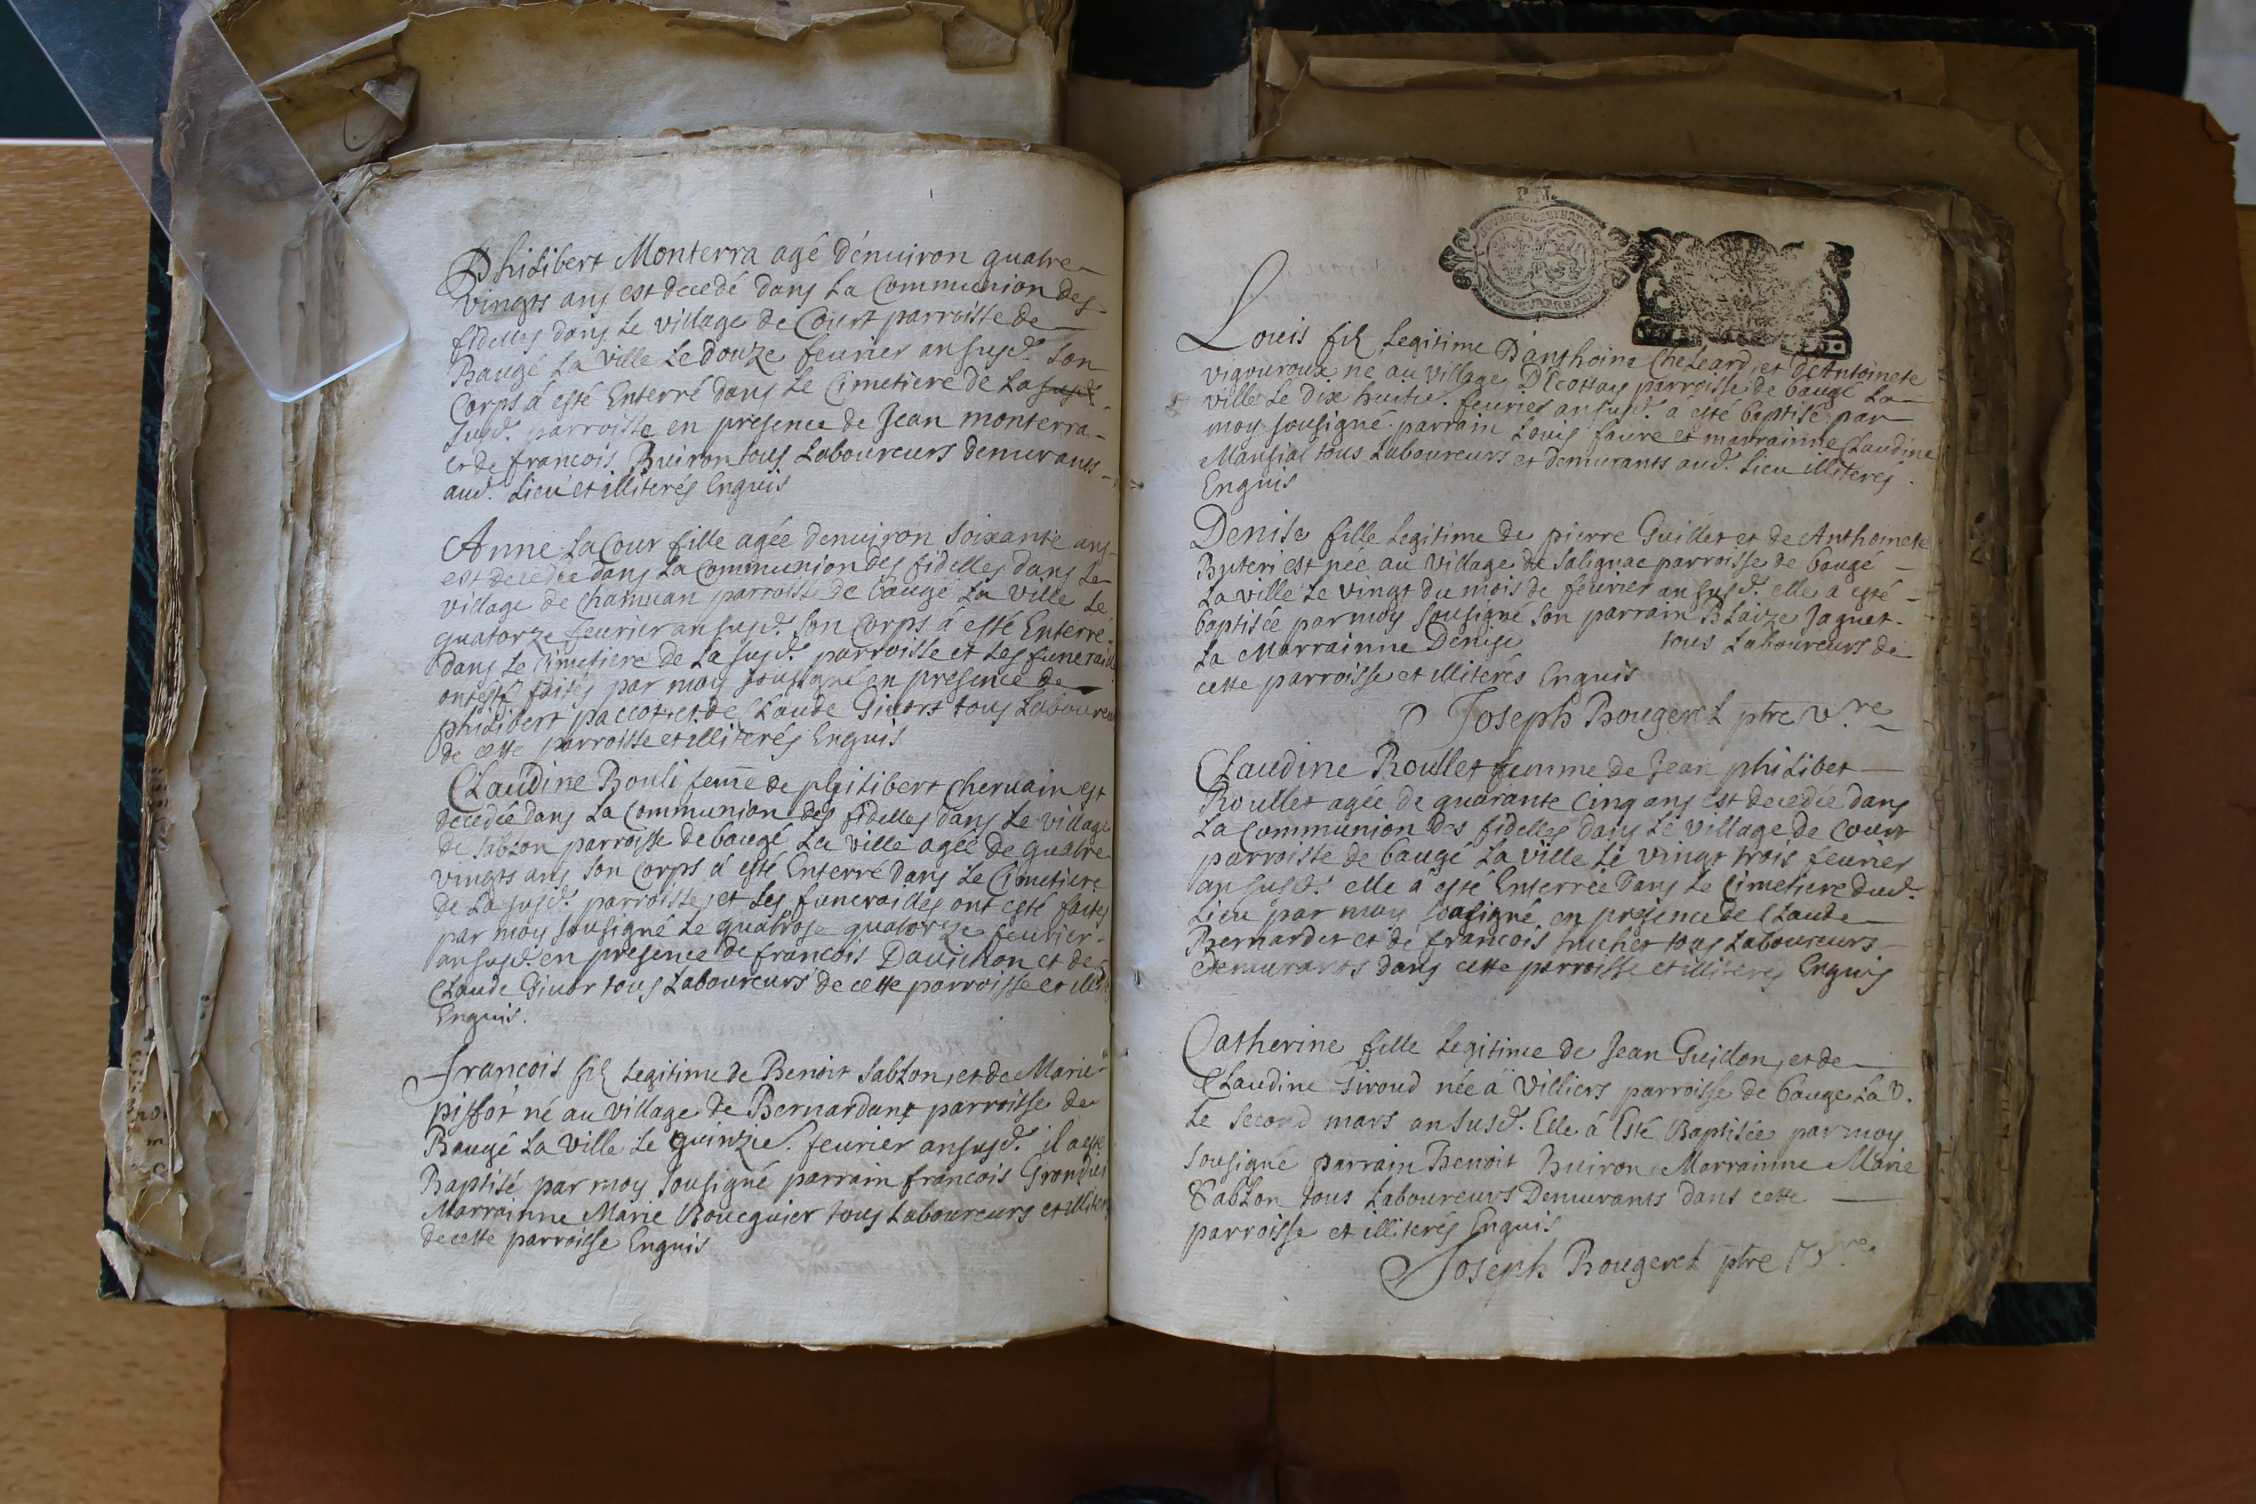 Philibert Monterra agé d'énuiron quatre
vingts ans est decedé dans la Communion des
fidelles dans le village de Court parroisse de
Baugé la ville le douze feurier an susd. son
Corps á esté Enterré dans le Cimetiere de la susd.
susd. parroisse en presence de Jean monterra
et de francois Buiron tous Laboureurs demurants
aud. Lieu et illiterés Enquis
Anne La Cour fille agée denuiron soixante ans
est decedée dans la Communion des fidelles dans le
village de Chamuan parroisse de baugé la ville le
quatorze feurier an susd. son Corps á esté Enterré
dans le Cimetiere de la susd. parroisse et les funerail
ont esté faites par moy sousigné en presence de
philibert paccot et de Claude Giuors tous Laboureu
de cette parroisse et illiterés Enquis
Claudine Bouli feme de philibert Cheruain est
decedée dans la Communion des fidelles dans le village
de sablon parroisse de baugé la ville agée de quatre
vingts ans son Corps á esté Enterré dans le Cimetiere
de la susd. parroisse, et les funerailles ont esté faites
par moy sousigné le quatrose quatorze feurier
an susd. en presence de francois Dauichon et de
Claude Giuor tous Laboureurs de cette parroisse et
Enquis.
francois fils Legitime de Benoit sablon, et de Marie
pissor né au village de Bernardant parroisse de
Baugé la ville le quinzie. feurier an susd. il a esté
Baptisé par moy sousigné parrain francois
Marrainne Marie Boucquier tous Laboureurs et
de cette parroisse Enquis
Louis fils Legitime D'anthoine Cheleard, et de Antoinete
vigouroux né au village D'Ecossay parroisse de baugé la
ville le dix huitie. feurier an susd. á esté baptisé par
moy sousigné parrain Louis faure et marrainne Claudine
Martial tous Laboureurs et demurants aud. lieu illiterés
Enquis
Denise fille Legitime de pierre Guillet et de Anthoinete
Buteri est née au village de salignac parroisse de baugé
la ville le vingt du mois de feurier an susd. elle a esté
baptisée par moy sousigné son parrain Blaize Jaquet
la Marrainne Denise tous Laboureurs de
cette parroisse et illiterés Enquis
Joseph Bougeret ptre v.re
Claudine Roullet femme de Jean philibet
Roullet agée de quarante cinq ans est decedée dans
la Communion des fidelles dans le village de Court
parroisse de baugé la ville le vingt trois feurier
an susd. elle á esté Enterrée dans le Cimetiere dud.
lieu par moy sousigné en presence de Claude
Bernardet et de francois tous Laboureurs
demurants dans cette parroisse et illiteres Enquis
Catherine fille Legitime de Jean Guillon, et de
Claudine Giroud née á Villiers parroisse de bauge la V.
le second mars an susd. Elle á Esté Baptisée par moy
sousigné parrain Benoit Buiron Marrainne Marie
Sablon tous Laboureurs Demurants dans cette
parroisse et illiterés Enquis
Joseph Bougeret ptre V.re